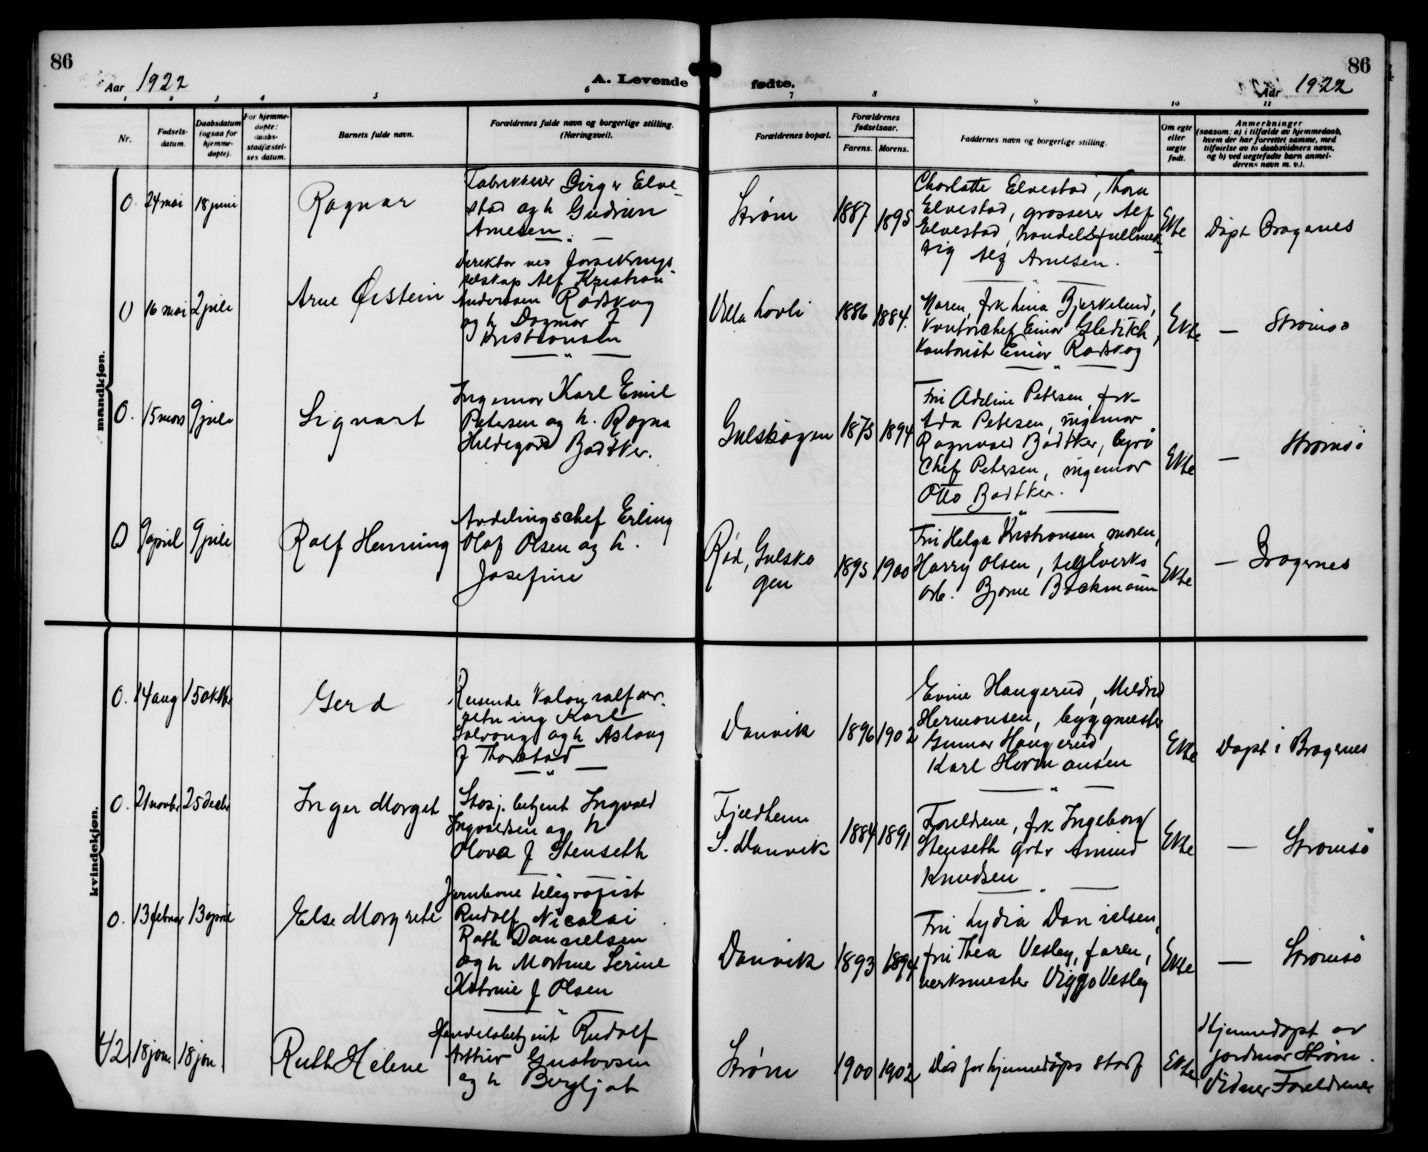 86
Aar 1922
A. Levende fødte.
86
Aar 1922
1 2 3 4 5 6 7 8 9 10 11
Nr.
Fødsels-
datum.
Daabsdatum
(ogsaa for
hjemme-
døpte).
For hjemme-
døpte:
daabs-
stadfæstel-
ses datum.
Barnets fulde navn.
Forældrenes fulde navn og borgerlige stilling.
(Næringsvei).
Forældrenes bopæl.
Forældrenes
fødselsaar.
Farens.
Morens.
Faddernes navn og borgerlige stilling.
Om egte
eller
uegte
født.
Anmerkninger
(saasom: a) i tilfælde av hjemmedaab,
hvem der har forrettet samme, med
tilføielse av to daabsvidners navn,
og b) ved uegtefødte barn anmel-
derens navn m. v.).
mandkjøn.
0. 24 mai 18 juni
Ragnar
Fabrikeier Birger Elve-
stad og h. Gudrun
Arnesen
Strøm
1887 1895
Charlotte Elvestad, Thora
Elvestad, grosserer Alf
Elvestad, handelsfullmek-
tig Alf Arnesen.
Ekte
Døpt Bragenes
0 16 mai 2 juli
Arne Øistein
Direktør ved forsikrings
selskap Alf Kristian
Andersen Rødskog
og h. Dagmar f
Kristiansen
Villa Lovli
1886 1884.
Moren, frk Lina Bjerkelund,
Kontorchef Einar Gleditch,
Kontorist Einar Rødskog
Ekte
— Strømsø
0. 15 mars 9 juli
Sigvart
Ingeniør Karl Emil
Petersen og h. Ragna
Hildegard Bødtker.
Gulskogen
1873 1894
Fru Adeline Petersen, frk
Ida Petersen, ingeniør
Ragnvald Bødtker, byrå
chef Petersen, ingeniør
Otto Bødtker.
Ekte
— Strømsø
0 9 april 9 juli
Rolf Henning
Avdelingschef Erling
Olaf Olsen og h.
Josefine
Rød, Gulsko
gen
1895 1900
Fru Helga Kristiansen, moren,
Harry Olsen, teglverks
arb. Bjarne Backmann
Ekte
— Bragernes
kvindekjøn.
0. 14 aug 15 oktbr
Gerd
Karl
Solvang og h Aslaug
f Thorstad
Danvik
1896 1902
Evine Haugerud, Mildrid
Hermansen, byggmester
Gunnar Haugerud,
Karl Hermansen
Ekte
Døpt i Bragernes
0. 21 novbr 25 decbr
Inger Margit
betjent Ingvald
Ingvaldsen og h
Olava f Stenseth
Fjeldheim
S. Danvik
1884 1891
Foreldrene, frk Ingeborg
Stenseth grdr Amund
Knudsen
Ekte
— Strømsø
0. 13 februar 13 april
Else Margrete
Jernbane telegrafist
Rudolf Nicolai
Roth Danielsen
og h Martine Serine
Katrine f Olsen
Danvik
1893 1894
Fru Lydia Danielsen,
fru Thea Vesley, faren,
verksmester Viggo Vesley
Ekte
— Strømsø
42 18 jan. 18 jan.
Ruth Helene
Handelsbetjent Rudolf
Arthur Gustavsen
og h Bergljot
Strøm
1900 1902
Død før hjemmedåps stadf
Ekte
Hjemmedøpt av
jordmor Strøm.
Vidner Foreldrene